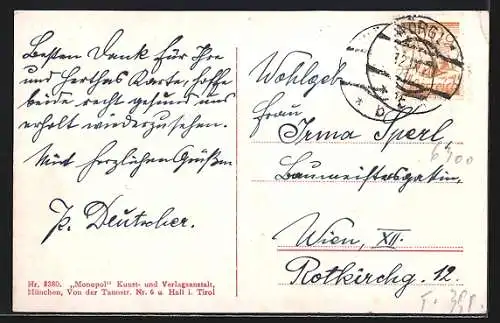 Besten Dank für Ihre
und Herthas Karte, hoffe
beide recht gesund und
erholt wiederzusehen.
Mit herzlichen Grüßen
P. Deutscher.
Nr. 8380. „Monopol" Kunst- und Verlagsanstalt,
München, Von der Tannstr. Nr. 6 u. Hall i. Tirol
WÖRGL
* b *
Wohlgeb
Frau
Irma Sperl
Baumeistersgattin,
Wien, XII.
Rotkirchg. 12.